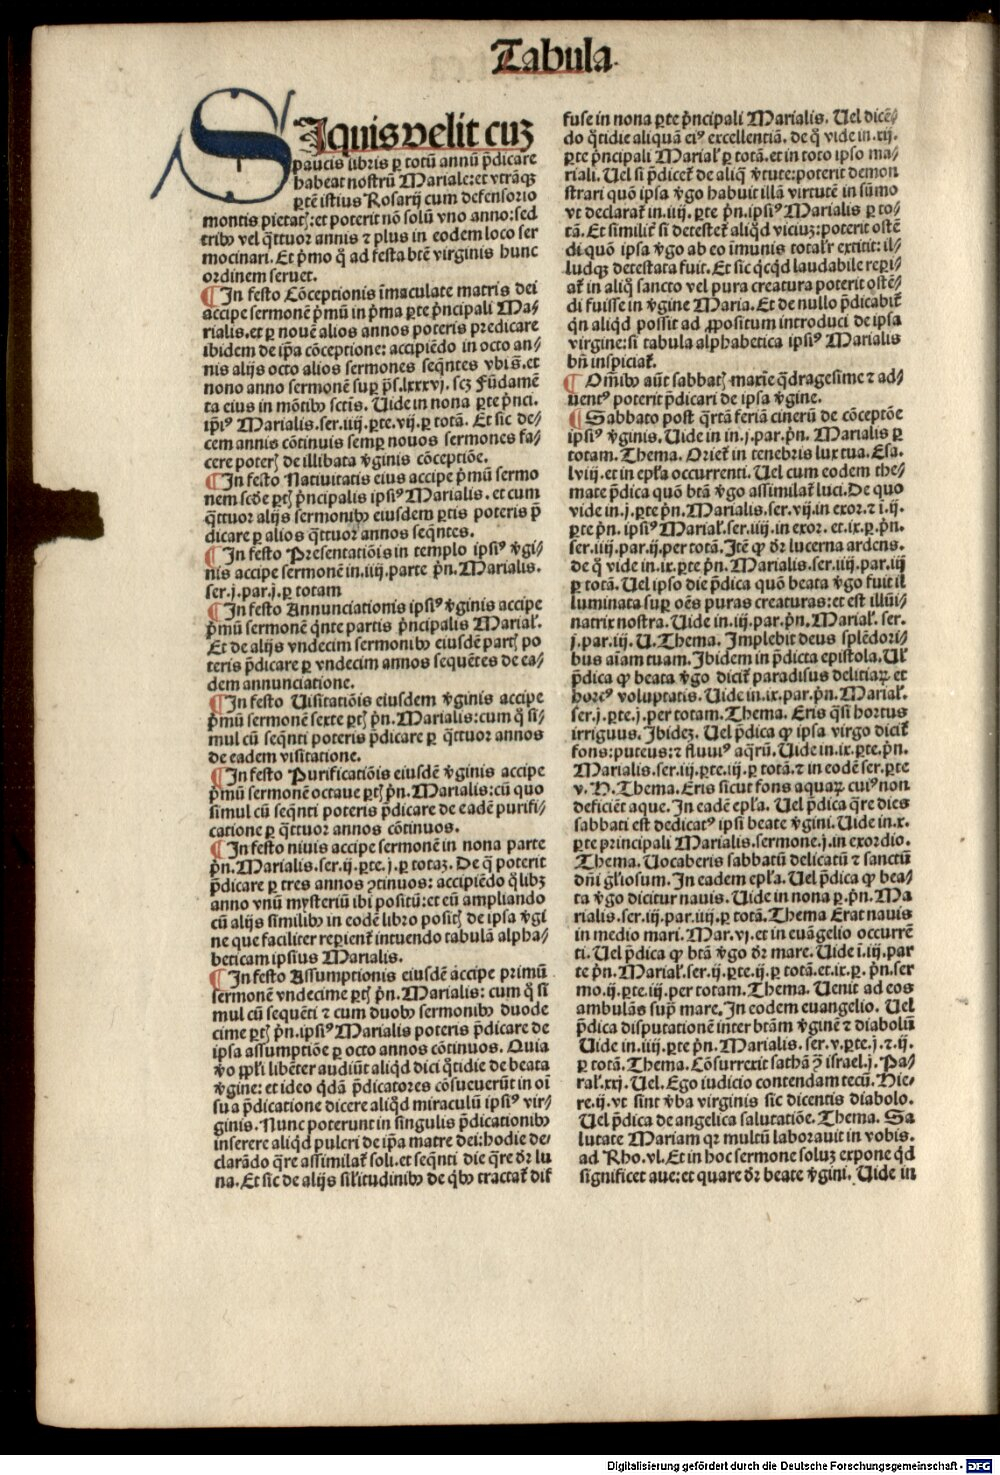 Tabula.
SIquis velit cuȝ
paucis libris ꝑ totū annū p̄dicare
habeat nostrū Mariale: et vtrāqꝫ
ꝑtē istius Rosarij cum defensorio
montis pietatꝭ: et poterit nō solū vno anno: sed
tribꝰ vel q̄ttuor annis ⁊ plus in eodem loco ser
mocinari. Et pͥmo ꝙ ad festa btē virginis hunc
ordinem seruet.
¶ In festo Cōceptionis īmaculate matris dei
accipe sermonē pͥmū in pͥma ꝑte pͥncipali Ma⸗
rialis. et ꝑ nouē alios annos poteris predicare
ibidem de ip̄a cōceptione: accipiēdo in octo an⸗
nis alijs octo alios sermones seqn̄tes vbi sͣ. et
nono anno sermonē suꝑ ps. lxxxvj. scȝ Fūdamē
ta eius in mōtibꝰ sctīs. Uide in nona ꝑte pͥnci.
ip̄iꝰ Marialis. ser. iiij. ꝑte. vij. ꝑ totā. Et sic de⸗
cem annis cōtinuis semꝑ nouos sermones fa⸗
cere poterꝭ de illibata v̄ginis cōceptiōe.
¶ In festo Natiuitatis eius accipe pͥmū sermo
nem scd̄e ꝑtꝭ pͥncipalis ipsiꝰ Marialis. et cum
q̄ttuor alijs sermonibꝰ eiusdem ꝑtis poteris p̄
dicare ꝑ alios q̄ttuor annos seqn̄tes.
¶ In festo Presentatiōis in templo ipsiꝰ v̄gi⸗
nis accipe sermonē in. iiij. parte pͥn. Marialis.
ser. j. par. j. ꝑ totam
¶ In festo Annunciationis ipsiꝰ v̄ginis accipe
pͥmū sermonē qͥnte partis pͥncipalis Marial̄.
Et de alijs vndecim sermonibꝰ eiusdē partꝭ po
teris p̄dicare ꝑ vndecim annos sequētes de ea⸗
dem annunciatione.
¶ In festo Uisitatiōis eiusdem v̄ginis accipe
pͥmū sermonē sexte ꝑtꝭ pͥn. Marialis: cum q̄ si⸗
mul cū seqn̄ti poteris p̄dicare ꝑ q̄ttuor annos
de eadem visitatione.
¶ In festo Purificatiōis eiusdē v̄ginis accipe
pͥmū sermonē octaue ꝑtꝭ pͥn. Marialis: cū quo
simul cū seqn̄ti poteris p̄dicare de eadē purifi⸗
catione ꝑ q̄ttuor annos cōtinuos.
¶ In festo niuis accipe sermonē in nona parte
pͥn. Marialis. ser. ij. ꝑte. j. ꝑ totaȝ. De q̄ poterit
p̄dicare ꝑ tres annos ꝯtinuos: accipiēdo q̄libȝ
anno vnū mysteriū ibi positū: et eū ampliando
cū alijs similibꝰ in eodē libro positꝭ de ipsa v̄gi
ne que faciliter reꝑient̄ intuendo tabulā alpha⸗
beticam ipsius Marialis.
¶ In festo Assumptionis eiusdē accipe primū
sermonē vndecime ꝑtꝭ pͥn. Marialis: cum q̄ si
mul cū sequēti ⁊ cum duobꝰ sermonibꝰ duode
cime ꝑtꝭ pͥn. ipsiꝰ Marialis poteris p̄dicare de
ipsa assumptiōe ꝑ octo annos cōtinuos. Quia
v̄o ppl̄i libēter audiūt aliqͥd dici q̄tidie de beata
v̄gine: et ideo qͥdā p̄dicatores cōsueuerūt in oī
sua p̄dicatione dicere aliqͥd miraculū ipsiꝰ vir⸗
ginis. Nunc poterunt in singulis p̄dicationibꝰ
inserere aliqͥd pulcri de ip̄a matre dei: hodie de⸗
clarādo q̄re assimilat̄ soli. et seqn̄ti die q̄re dr̄ lu
na. Et sic de alijs sil̄itudinibꝰ de qͥbꝰ tractat̄ dif
fuse in nona ꝑte pͥncipali Marialis. Uel dicē⸗
do q̄tidie aliquā eiꝰ excellentiā. de q̄ vide in. xij.
ꝑte pͥncipali Marial̄ ꝑ totā. et in toto ipso ma⸗
riali. Uel si p̄dicet̄ de aliq̄ v̄tute: poterit demon
strari quō ipsa v̄go habuit illā virtutē in sūmo
vt declarat̄ in. iiij. ꝑte pͥn. ipsiꝰ Marialis ꝑ to⸗
tā. Et similit̄ si detestet̄ aliqͥd viciuȝ: poterit ostē
di quō ipsa v̄go ab eo īmunis totalr̄ extitit: il⸗
ludqꝫ detestata fuit. Et sic qͥcqͥd laudabile reꝑi⸗
at̄ in aliq̄ sancto vel pura creatura poterit ostē⸗
di fuisse in v̄gine Maria. Et de nullo p̄dicabit̄
qͥn aliqͥd possit ad ꝓpositum introduci de ipsa
virgine: si tabula alphabetica ipsiꝰ Marialis
bn̄ inspiciat̄.
¶ Om̄ibꝰ aūt sabbatꝭ maxīe q̄dragesime ⁊ ad⸗
uentꝰ poterit p̄dicari de ipsa v̄gine.
¶ Sabbato post q̄rtā feriā cinerū de cōceptōe
ipsiꝰ v̄ginis. Uide in in. j. par. pͥn. Marialis ꝑ
totam. Thema. Oriet̄ in tenebris lux tua. Esa.
lviij. et in epl̄a occurrenti. Uel cum eodem the⸗
mate p̄dica quō btā v̄go assimilat̄ luci. De quo
vide in. j. ꝑte pͥn. Marialis. ser. vij. in exor. ⁊ ī. ij.
ꝑte pͥn. ipsiꝰ Marial̄. ser. iiij. in exor. et. ix. ꝑ. pͥn.
ser. iiij. par. ij. per totā. Itē ꝙ dr̄ lucerna ardens.
de q̄ vide in. ix. ꝑte pͥn. Marialis. ser. iiij. par. iij
ꝑ totā. Uel ipso die p̄dica quō beata v̄go fuit il
luminata suꝑ oēs puras creaturas: et est illūi⸗
natrix nostra. Uide in. iij. par. pͥn. Marial̄. ser.
j. par. iij. U. Thema. Implebit deus splēdori⸗
bus aīam tuam. Ibidem in p̄dicta epistola. Ul̄
p̄dica ꝙ beata v̄go dicit̄ paradisus delitiaꝝ et
hortꝰ voluptatis. Uide in. ix. par. pͥn. Marial̄.
ser. j. ꝑte. j. per totam. Thema. Eris q̄si hortus
irriguus. Ibideȝ. Uel p̄dica ꝙ ipsa virgo dicit̄
fons: puteus: ⁊ fluuiꝰ aq̄rū. Uide in. ix. ꝑte. pͥn.
Marialis. ser. iij. ꝑte. iij. ꝑ totā. ⁊ in eodē ser. ꝑte
v. N. Thema. Eris sicut fons aquaꝝ cuiꝰ non
deficiēt aque. In eadē epl̄a. Uel p̄dica q̄re dies
sabbati est dedicatꝰ ipsi beate v̄gini. Uide in. x.
ꝑte principali Marialis. sermone. j. in exordio.
Thema. Uocaberis sabbatū delicatū ⁊ sanctū
dn̄i gl̄iosum. In eadem epl̄a. Uel p̄dica ꝙ bea⸗
ta v̄go dicitur nauis. Uide in nona ꝑ. pͥn. Ma
rialis. ser. iij. par. iiij. ꝑ totā. Thema Erat nauis
in medio mari. Mar. vj. et in euāgelio occurrē
ti. Uel p̄dica ꝙ btā v̄go dr̄ mare. Uide ī. iij. par
te pͥn. Marial̄. ser. ij. ꝑte. ij. ꝑ totā. et. ix. ꝑ. pͥn. ser
mo. ij. ꝑte. iij. per totam. Thema. Uenit ad eos
ambulās supͣ mare. In eodem euangelio. Uel
p̄dica disputationē inter btām v̄ginē ⁊ diabolū
Uide in. iiij. ꝑte pͥn. Marialis. ser. v. ꝑte. j. ⁊. ij.
ꝑ totā. Thema. Cōsurrexit sathā ꝯͣ israel. j. Pa⸗
ral̄. xxj. Uel. Ego iudicio contendam tecū. Hie⸗
re. ij. vt sint v̄ba virginis sic dicentis diabolo.
Uel p̄dica de angelica salutatiōe. Thema. Sa
lutate Mariam qr multū laborauit in vobis.
ad Rho. vl. Et in hoc sermone soluȝ expone qͥd
significet aue: et quare dr̄ beate v̄gini. Uide in
Digitalisierung gefördert durch die Deutsche Forschungsgemeinschaft - DFG